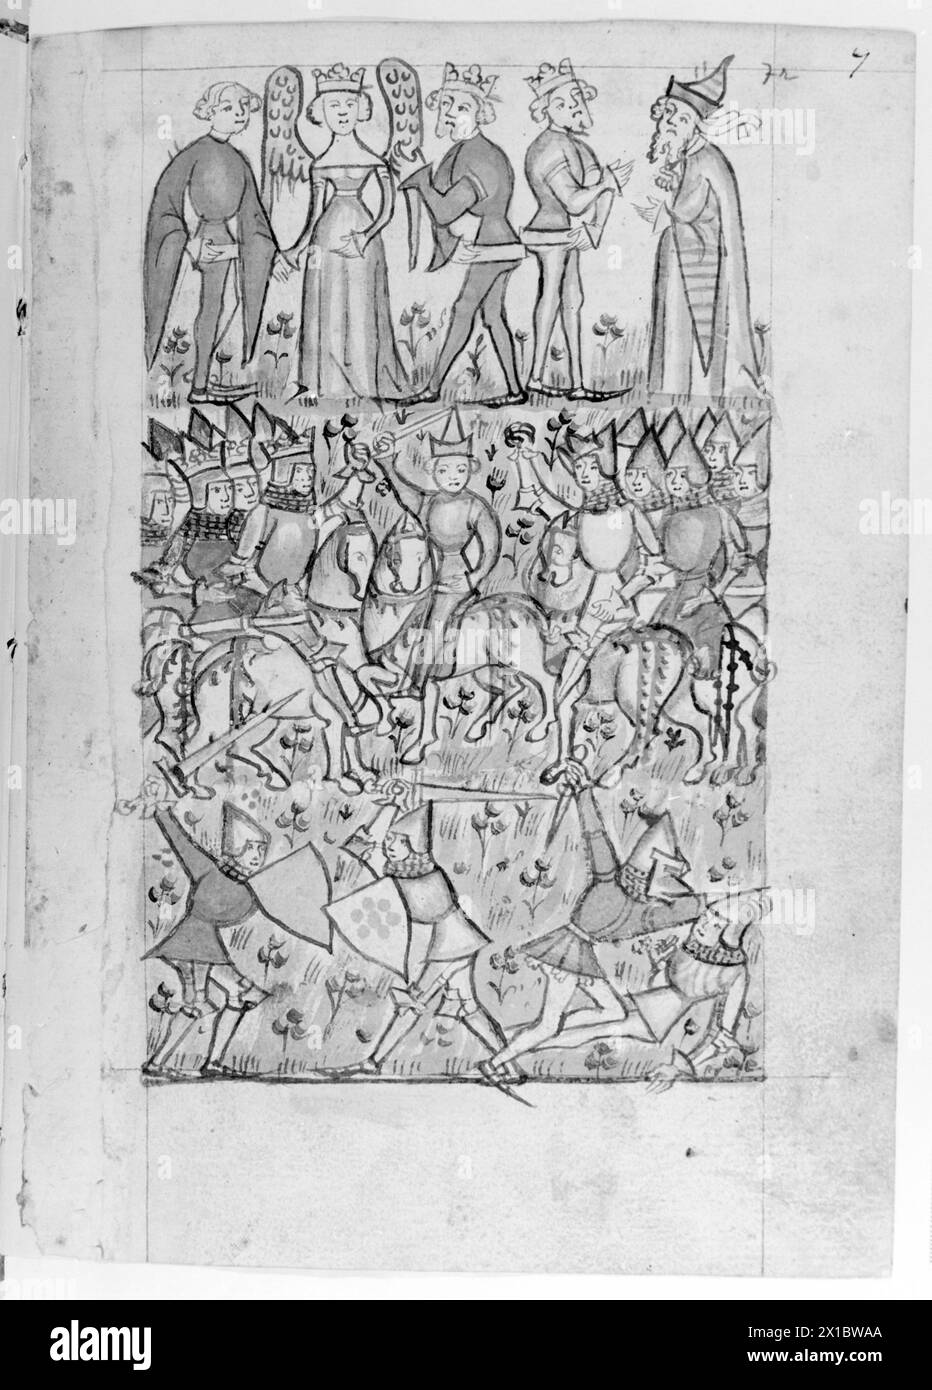 7r 7
alamy
Image ID: 2X1BWAA
www.alamy.com